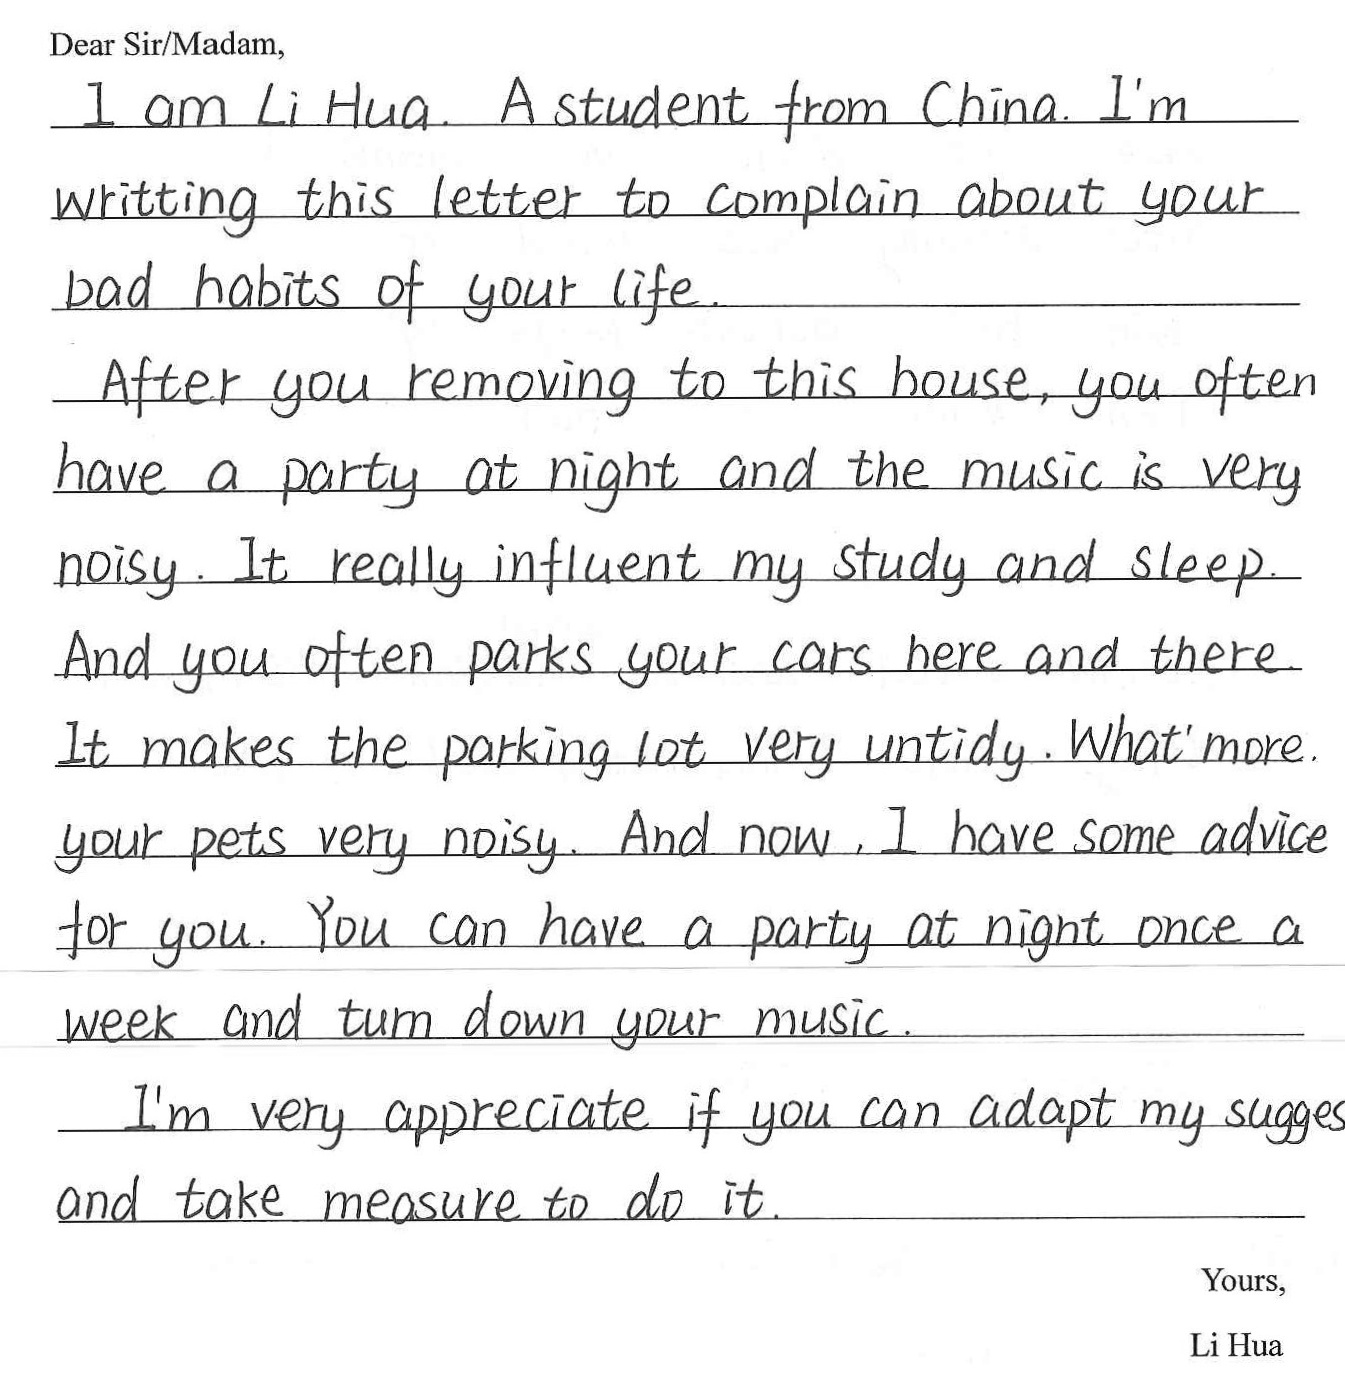 Dear Sir/Madam,
I am Li Hua. A student from China. I'm
writting this letter to complain about your
bad habits of your life.
After you removing to this house, you often
have a party at night and the music is very
noisy. It really influent my study and sleep.
And you often parks your cars here and there.
It makes the parking lot very untidy. What' more.
your pets very noisy. And now, I have some advice
for you. You can have a party at night once a
week and turn down your music.
I'm very appreciate if you can adapt my sugges
and take measure to do it.
Yours,
Li Hua